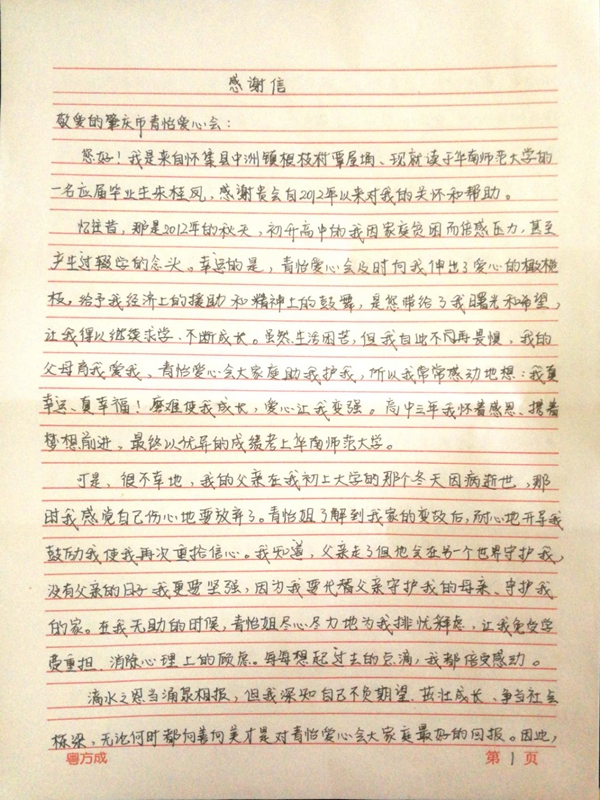 感谢信
敬爱的肇庆市青怡爱心会：
您好！我是来自怀集县中洲镇根枝村覃屋埇、现就读于华南师范大学的
一名应届毕业生来桂凤，感谢贵会自2012年以来对我的关怀和帮助。
忆往昔，那是2012年的秋天，初升高中的我因家庭贫困而倍感压力，甚至
产生过辍学的念头。幸运的是，青怡爱心会及时向我伸出了爱心的橄榄
枝，给予我经济上的援助和精神上的鼓舞，是您带给了我曙光和希望，
让我得以继续求学、不断成长。虽然生活困苦，但我自此不再畏惧，我的
父母育我爱我、青怡爱心会大家庭助我护我，所以我常常感动地想：我真
幸运、真幸福！磨难使我成长，爱心让我变强。高中三年我怀着感恩、携着
梦想前进、最终以优异的成绩考上华南师范大学。
可是、很不幸地，我的父亲在我初上大学的那个冬天因病逝世，那
时我感觉自己伤心地要放弃了。青怡姐了解到我家的变故后，耐心地开导我
鼓励我使我再次重拾信心。我知道，父亲走了但他会在另一个世界守护我，
没有父亲的日子我更要坚强，因为我要代替父亲守护我的母亲、守护我
的家。在我无助的时候，青怡姐尽心尽力地为我排忧解虑，让我免受学
费重担、消除心理上的顾虑。每每想起过去的点滴，我都倍受感动。
滴水之恩当涌泉相报，但我深知自己不负期望、茁壮成长、争当社会
栋梁，无论何时都向善向美才是对青怡爱心会大家庭最好的回报。因此，
粤方成 第1页